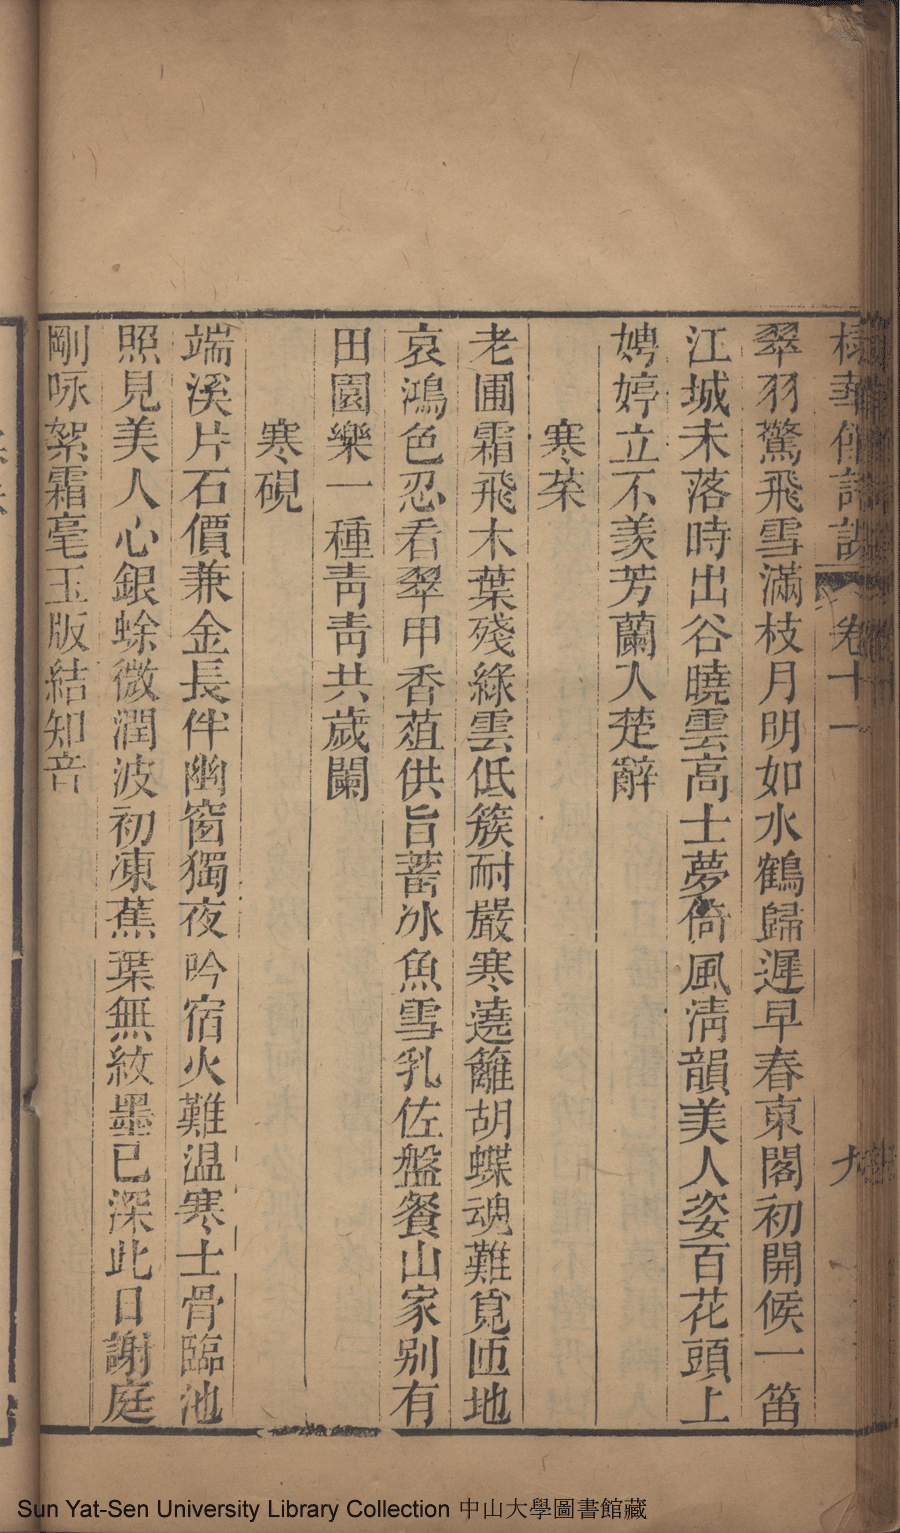 棣華館詩課 卷十一 九
翠羽驚飛雪滿枝月明如水鶴歸遲早春東閣初開候一笛
江城未落時出谷曉雲高士夢倚風淸韻美人姿百花頭上
娉婷立不羨芳蘭入楚辭
寒菜
老圃霜飛木葉殘綠雲低簇耐嚴寒遶籬胡蝶魂難覓匝地
哀鴻色忍看翠甲香菹供旨蓄冰魚雪乳佐盤餐山家别有
田園樂一種靑靑共歲闌
寒硯
端溪片石價兼金長伴幽窗獨夜吟宿火難温寒士骨臨池
照見美人心銀蜍微潤波初凍蕉葉無紋墨已深此日謝庭
剛咏絮霜毫玉版結知音
Sun Yat-Sen University Library Collection 中山大學圖書館藏